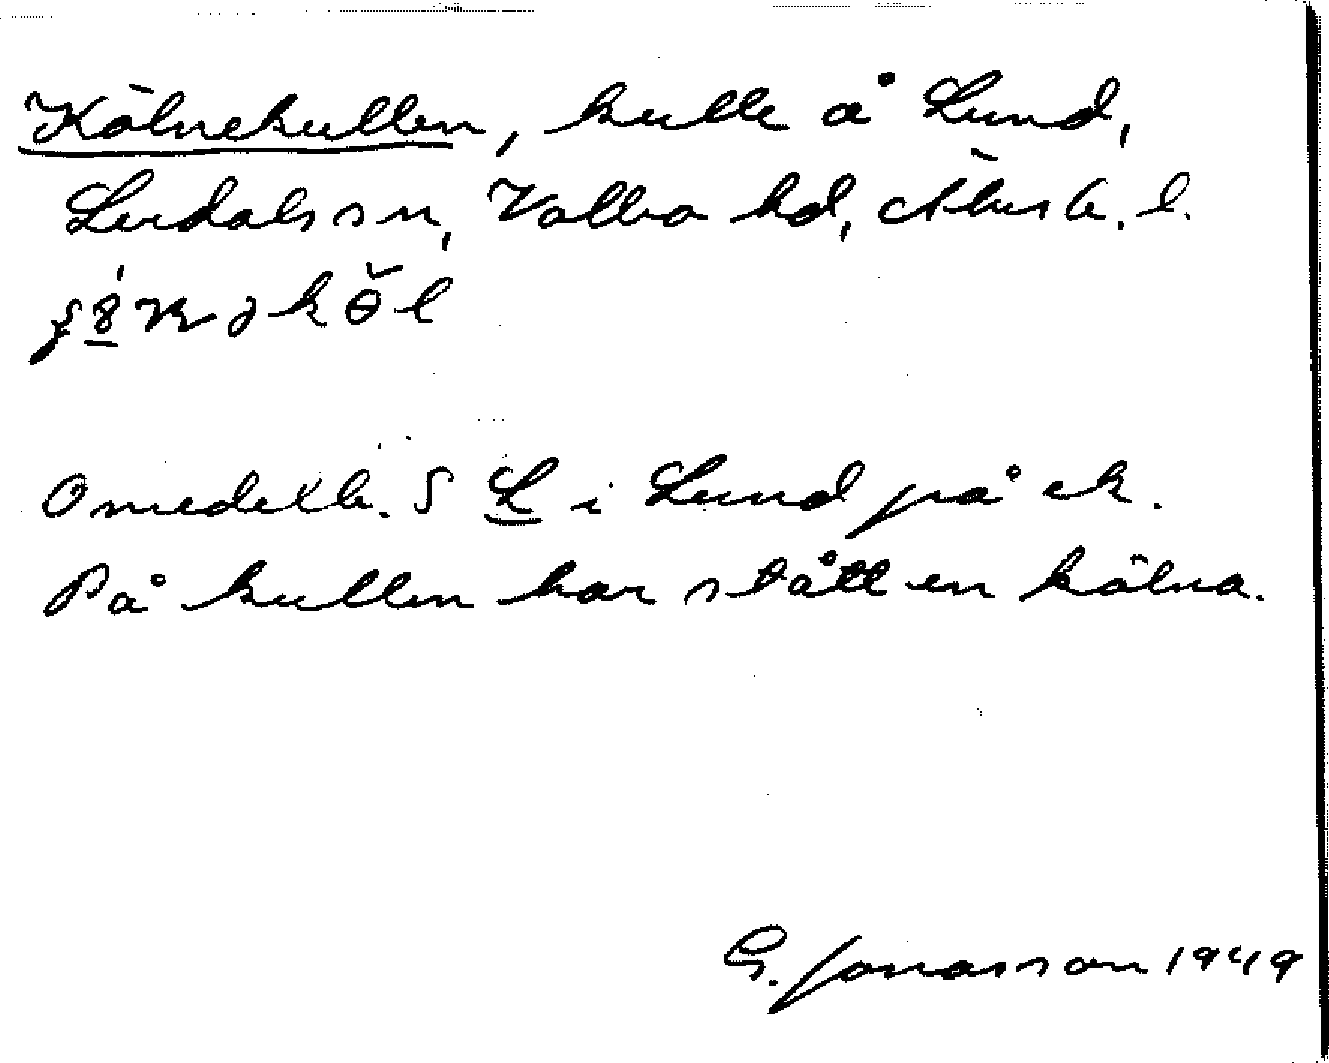 Kölnekullen, kulle å Lund,
Lerdals sn, Valbo hd, Älvsb. l.
Omedelb. S L i Lund på ek.
På kullen har stått en kölna.
G. Jonasson 1949